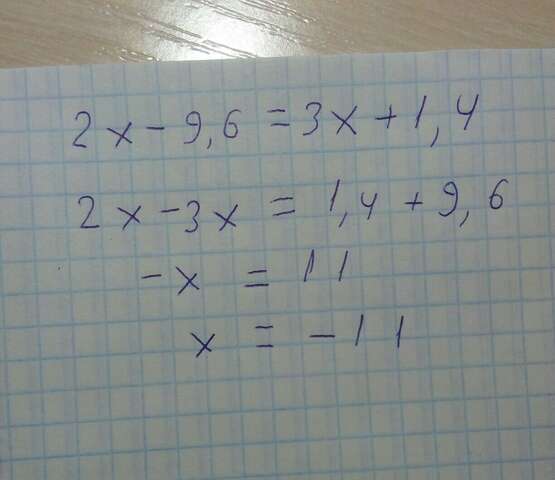 2x - 9,6 = 3x + 1,4
2x - 3x = 1,4 + 9,6
-x = 11
x = -11